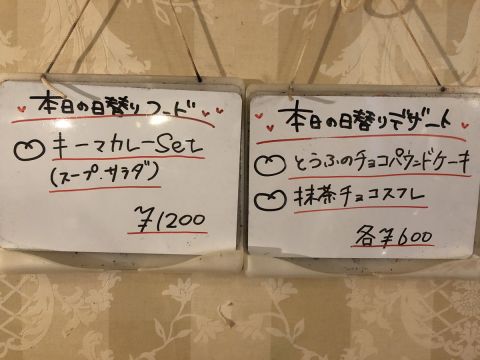 本日の日替りフード
キーマカレーSet
(スープ・サラダ)
¥1200
本日の日替りデザート
とうふのチョコパウンドケーキ
抹茶チョコスフレ
各¥600